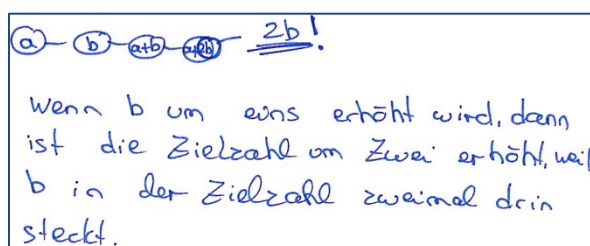 a b a+b a+2b 2b!
Wenn b um eins erhöht wird, dann
ist die Zielzahl um Zwei erhöht, weil
b in der Zielzahl zweimal drin
steckt.